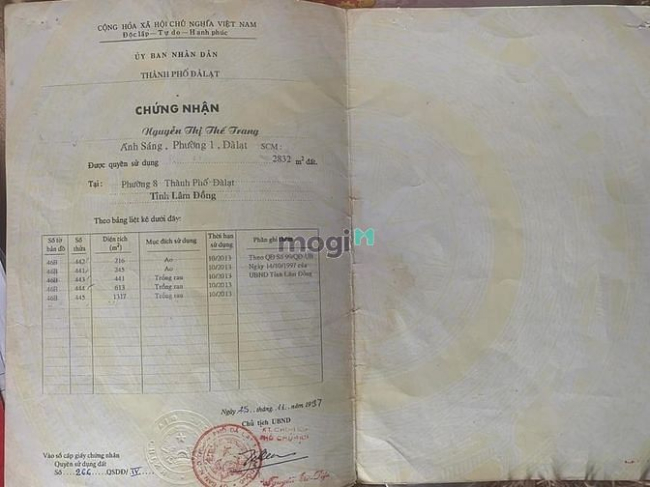 CỘNG HÒA XÃ HỘI CHỦ NGHĨA VIỆT NAM
Độc lập - Tự do - Hạnh phúc
ỦY BAN NHÂN DÂN
THÀNH PHỐ ĐÀLẠT
CHỨNG NHẬN
Nguyễn Thị Thế Trang
Ánh Sáng, Phường 1, Đàlạt SCM:
Được quyền sử dụng 2832 m² đất.
Tại: Phường 8 Thành Phố Đàlạt
Tỉnh Lâm Đồng
Theo bảng liệt kê dưới đây:
Số tờ bản đồ Số thửa Diện tích (m²) Mục đích sử dụng Thời hạn sử dụng Phần ghi thêm
46B 442 216 Ao 10/2013 Theo QĐ Số 99/QĐ-UB
46B 441 245 Ao 10/2013 Ngày 14/10/1997 của
46B 443 441 Trồng rau 10/2013 UBND Tỉnh Lâm Đồng
46B 444 613 Trồng rau 10/2013
46B 445 1317 Trồng rau 10/2013
mogi
Ngày 15 tháng 11 năm 1997
Chủ tịch UBND
KT. CHỦ TỊCH
PHÓ CHỦ TỊCH
Vào sổ cấp giấy chứng nhận
Quyền sử dụng đất
Số 266 QSDĐ/IV